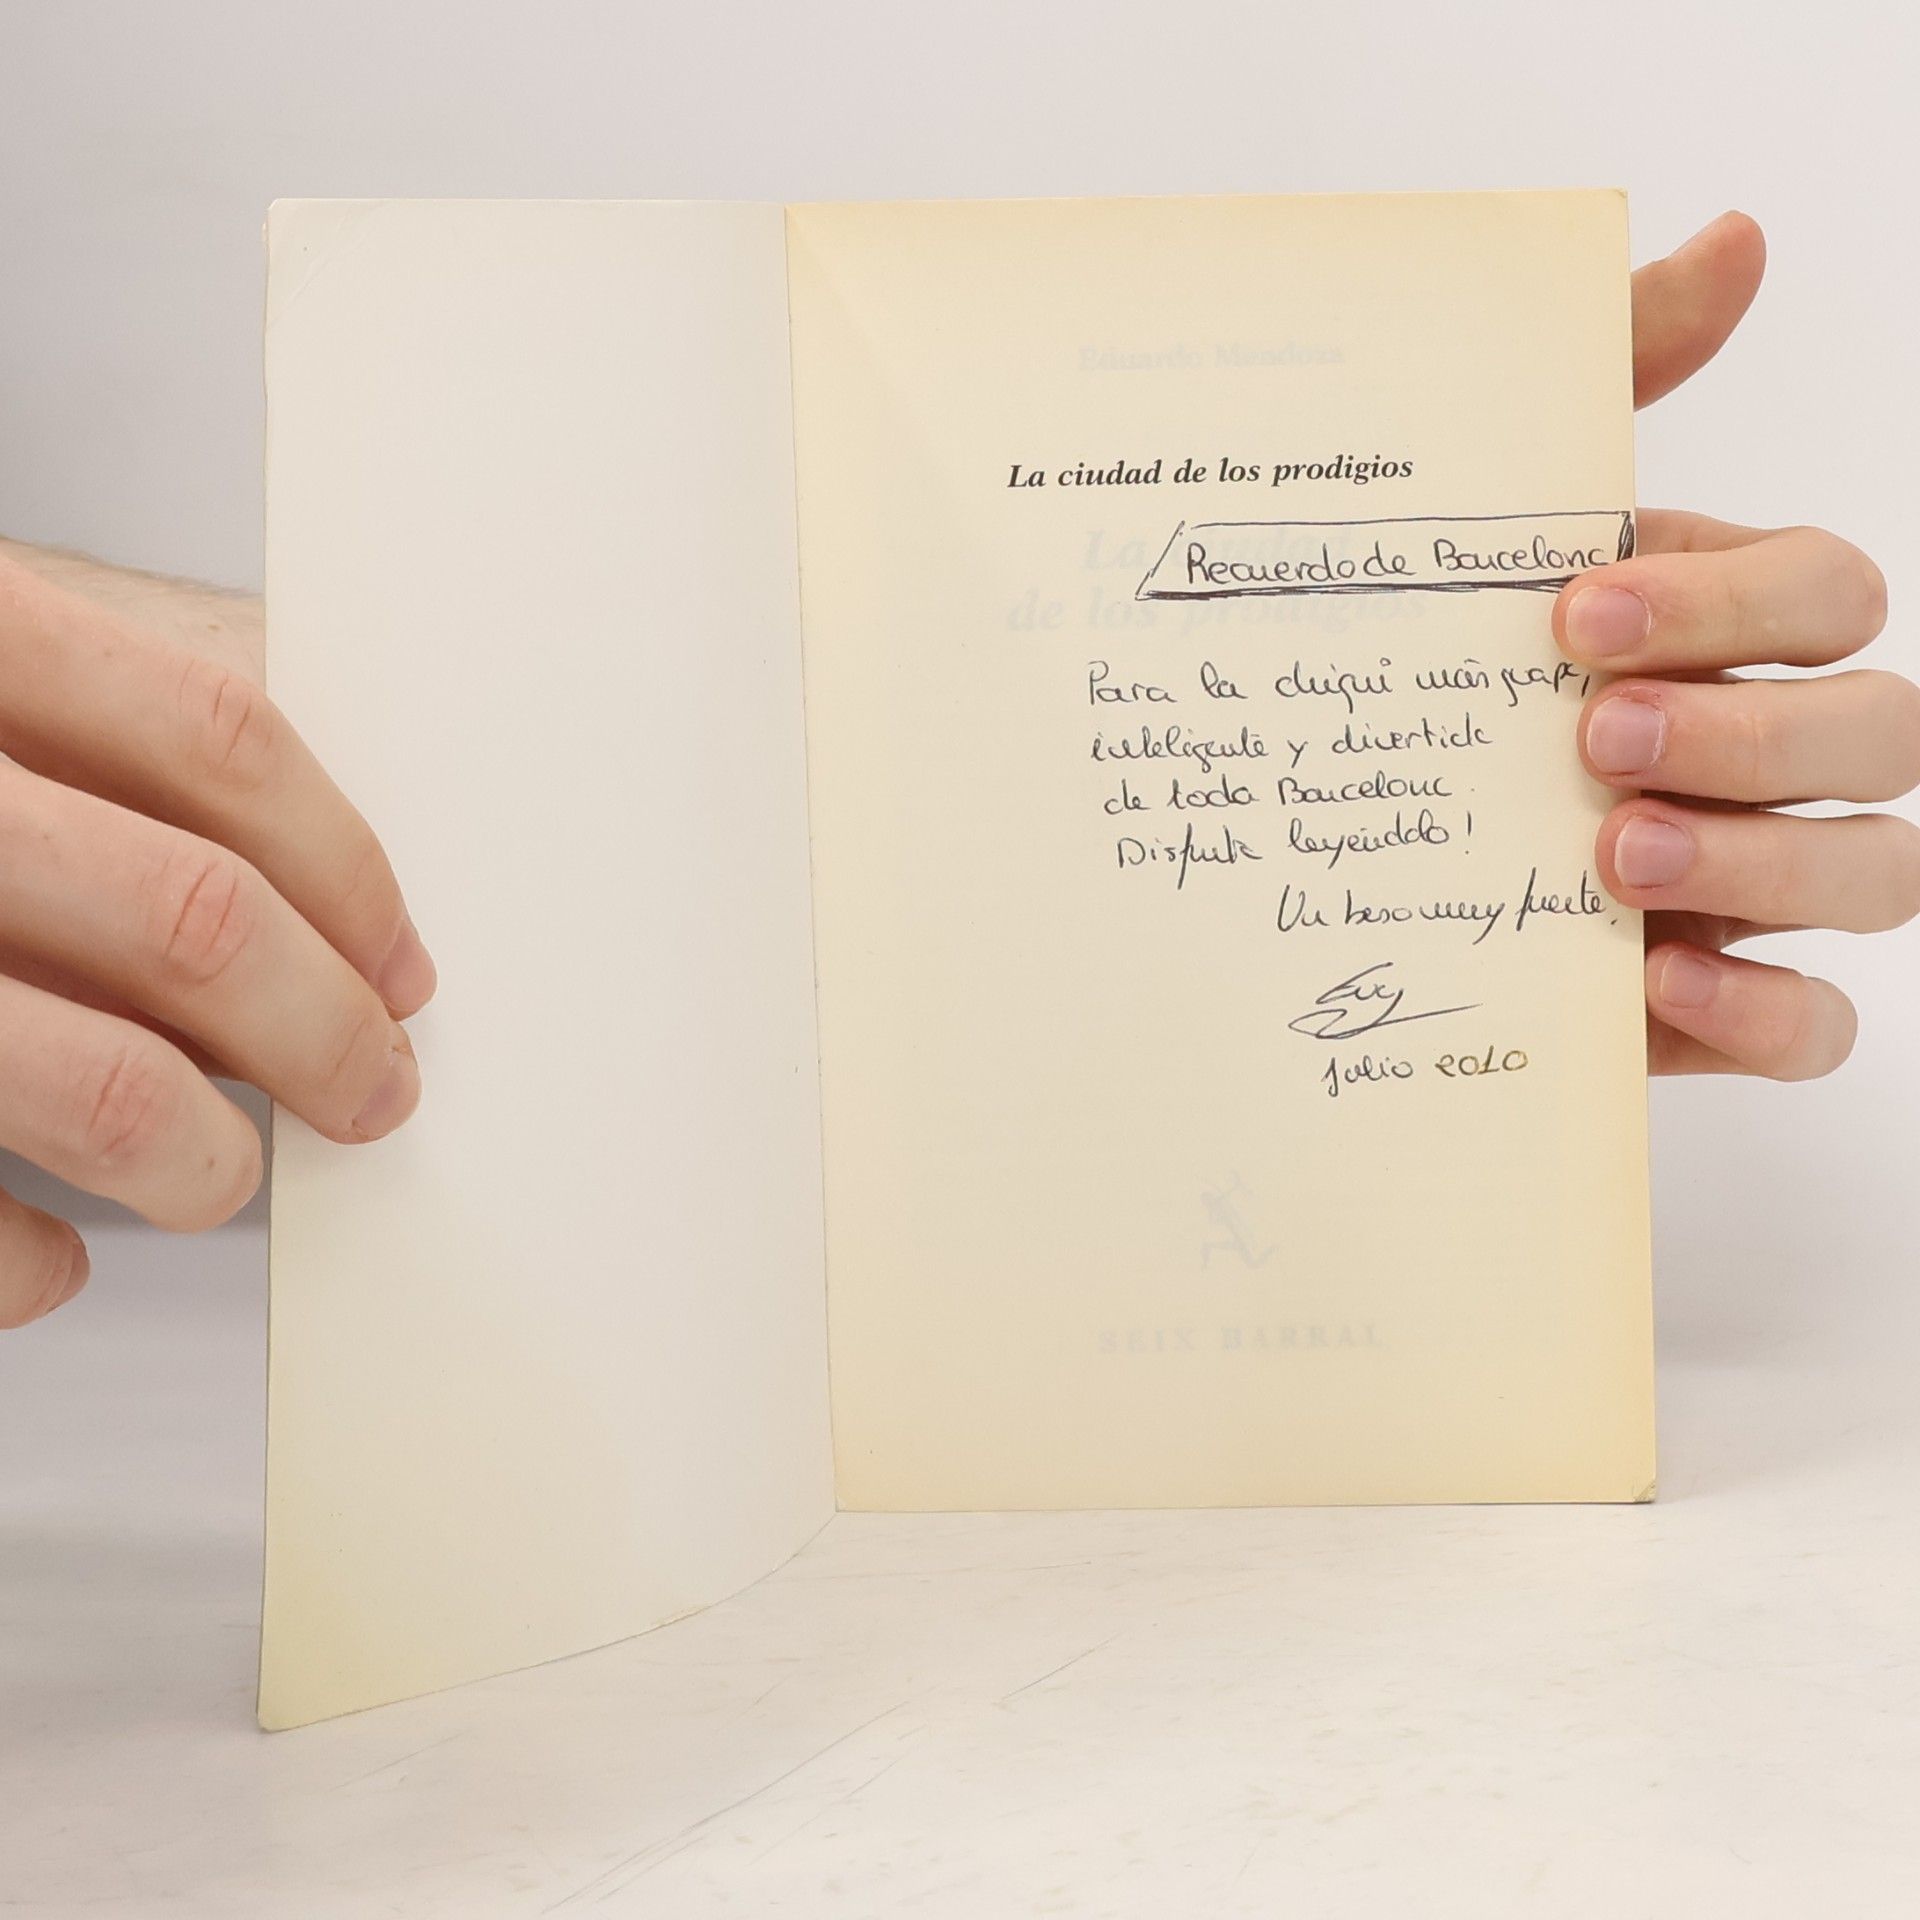 Eduardo Mendoza
La ciudad de los prodigios
La ciudad
de los prodigios
Recuerdo de Barcelona
Para la chiqui más guapa,
inteligente y divertida
de toda Barcelona.
Disfruta leyéndolo!
Un beso muy fuerte.
Evey
Julio 2010
SEIX BARRAL